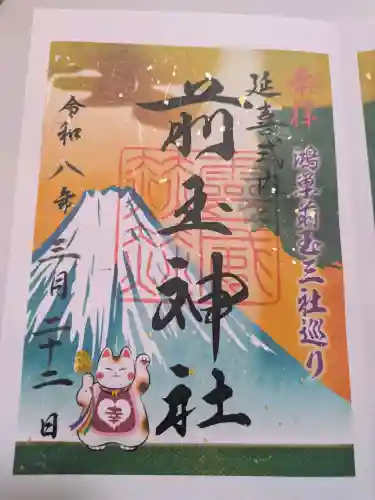 奉拝
鴻巣前玉三社巡り
延喜式内
前玉神社
令和八年三月二十二日
幸